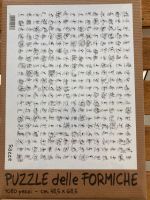 PUZZLE delle FORMICHE
1080 pezzi - cm. 48,5 x 68,5